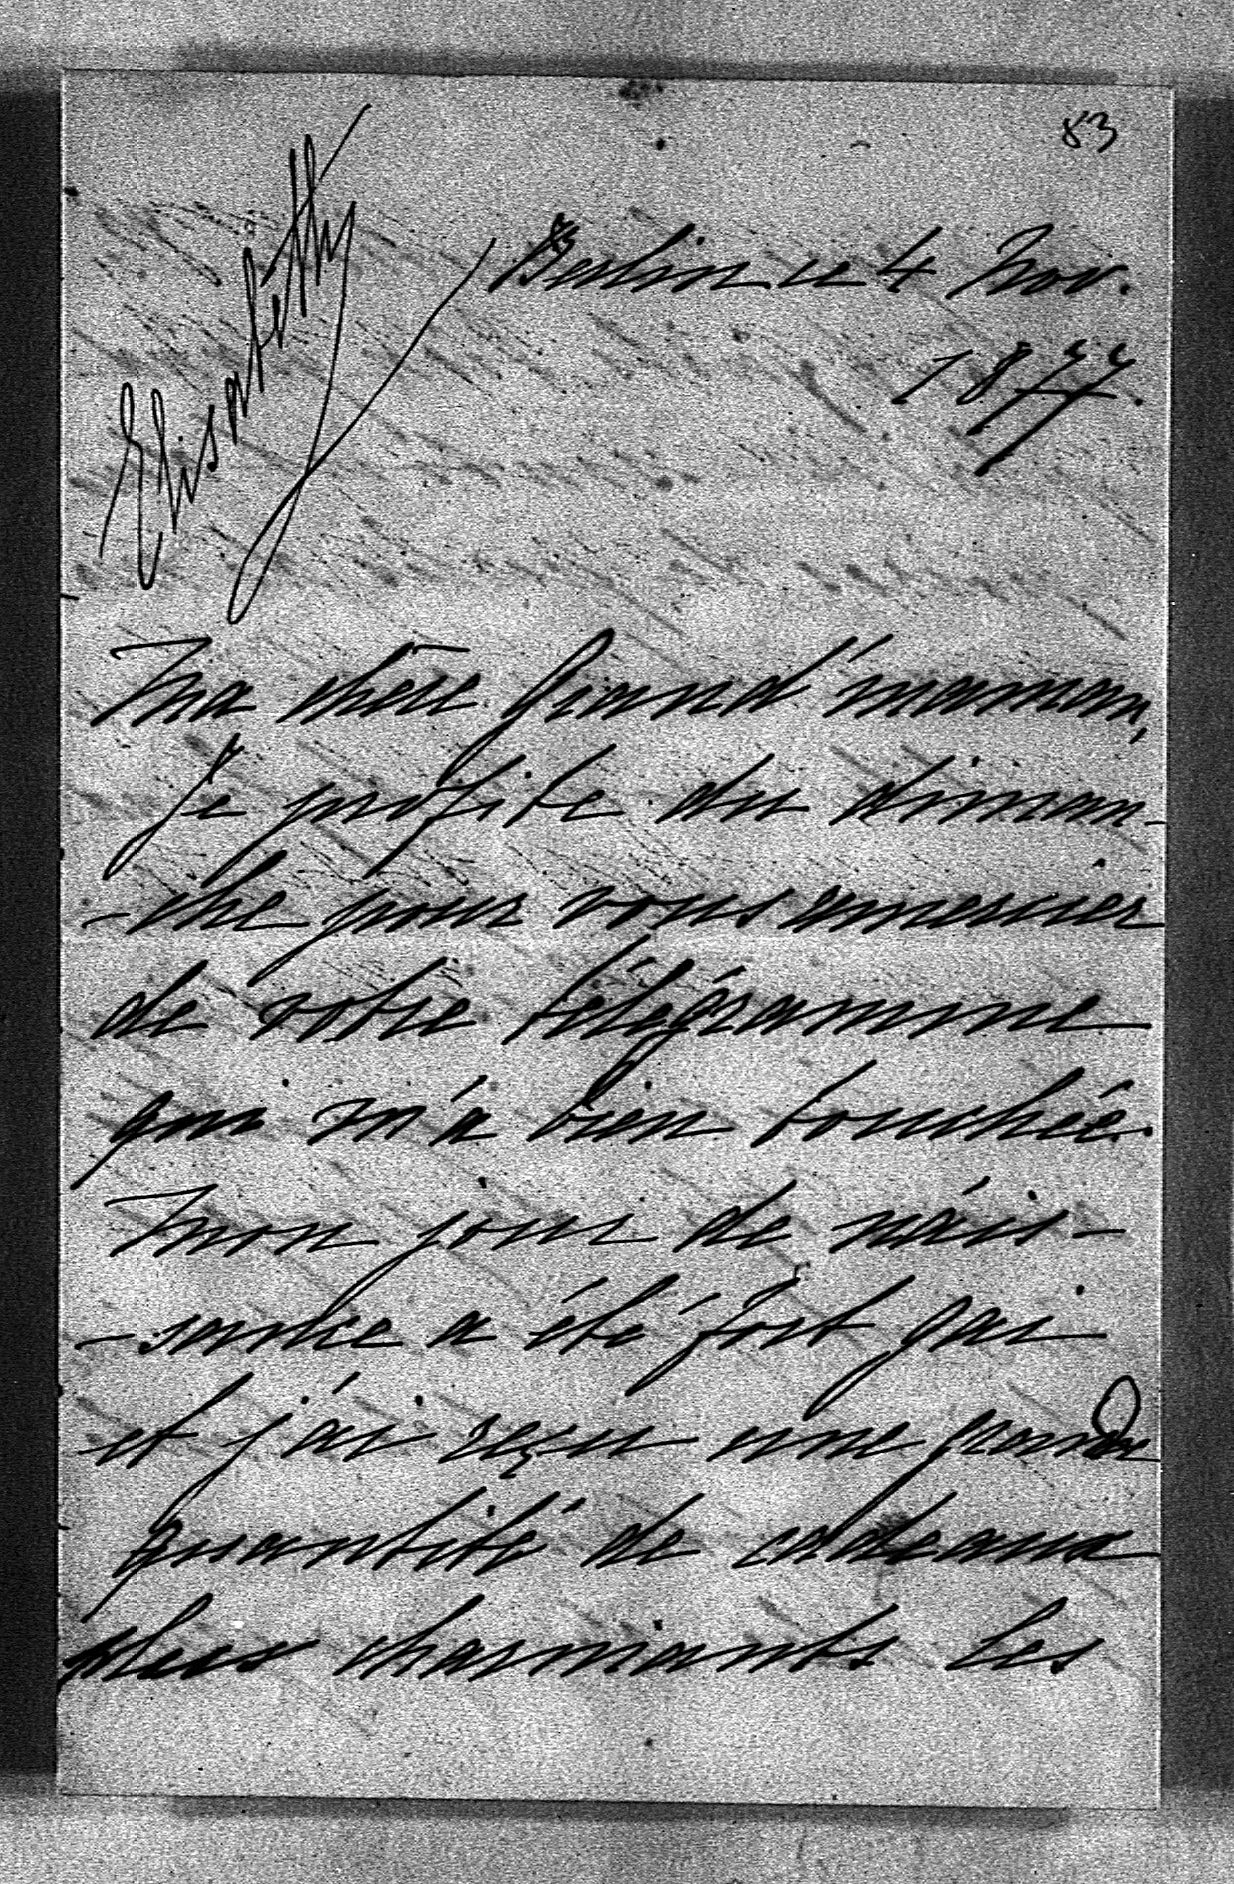 83
Elisabeth
Berlin le 4 Nov.
1877.
Ma chère Grand'maman,
Je profite du diman-
-che pour vous remercier
de votre télégramme
qui m'a bien touchée.
Mon jour de nais-
-sance a été fort gai
et j'ai reçu une grande
quantité de cadeaux
plus charmants les